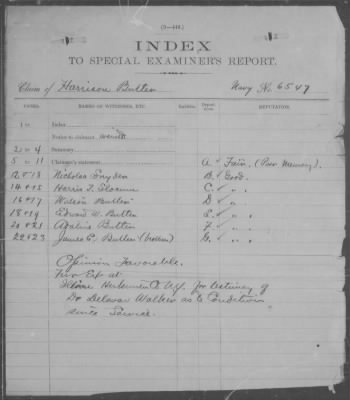 (3—446.)
INDEX
TO SPECIAL EXAMINER'S REPORT.
Claim of Harrison Butler Navy No. 6547
PAGES. NAMES OF WITNESSES, ETC. REPUTATION.
1 Index
Notice to claimant waived
2 to 4 Summary
5 to 11 Claimant's statement A Fair, (Poor Memory).
12 & 13 Nicholas Snyder B Good.
14 & 15 Harris T. C " "
16 & 17 Wilson Butler D " "
18 & 19 Edwin W. Butler E " "
20 & 21 Butler F " "
22 & 23 James E. Butler (brother) G " "
Opinion Favorable.
Further Exp at
Herkimer Co N.Y. for testimony of
Dr. Delavan Walker as to Condition
since Service.